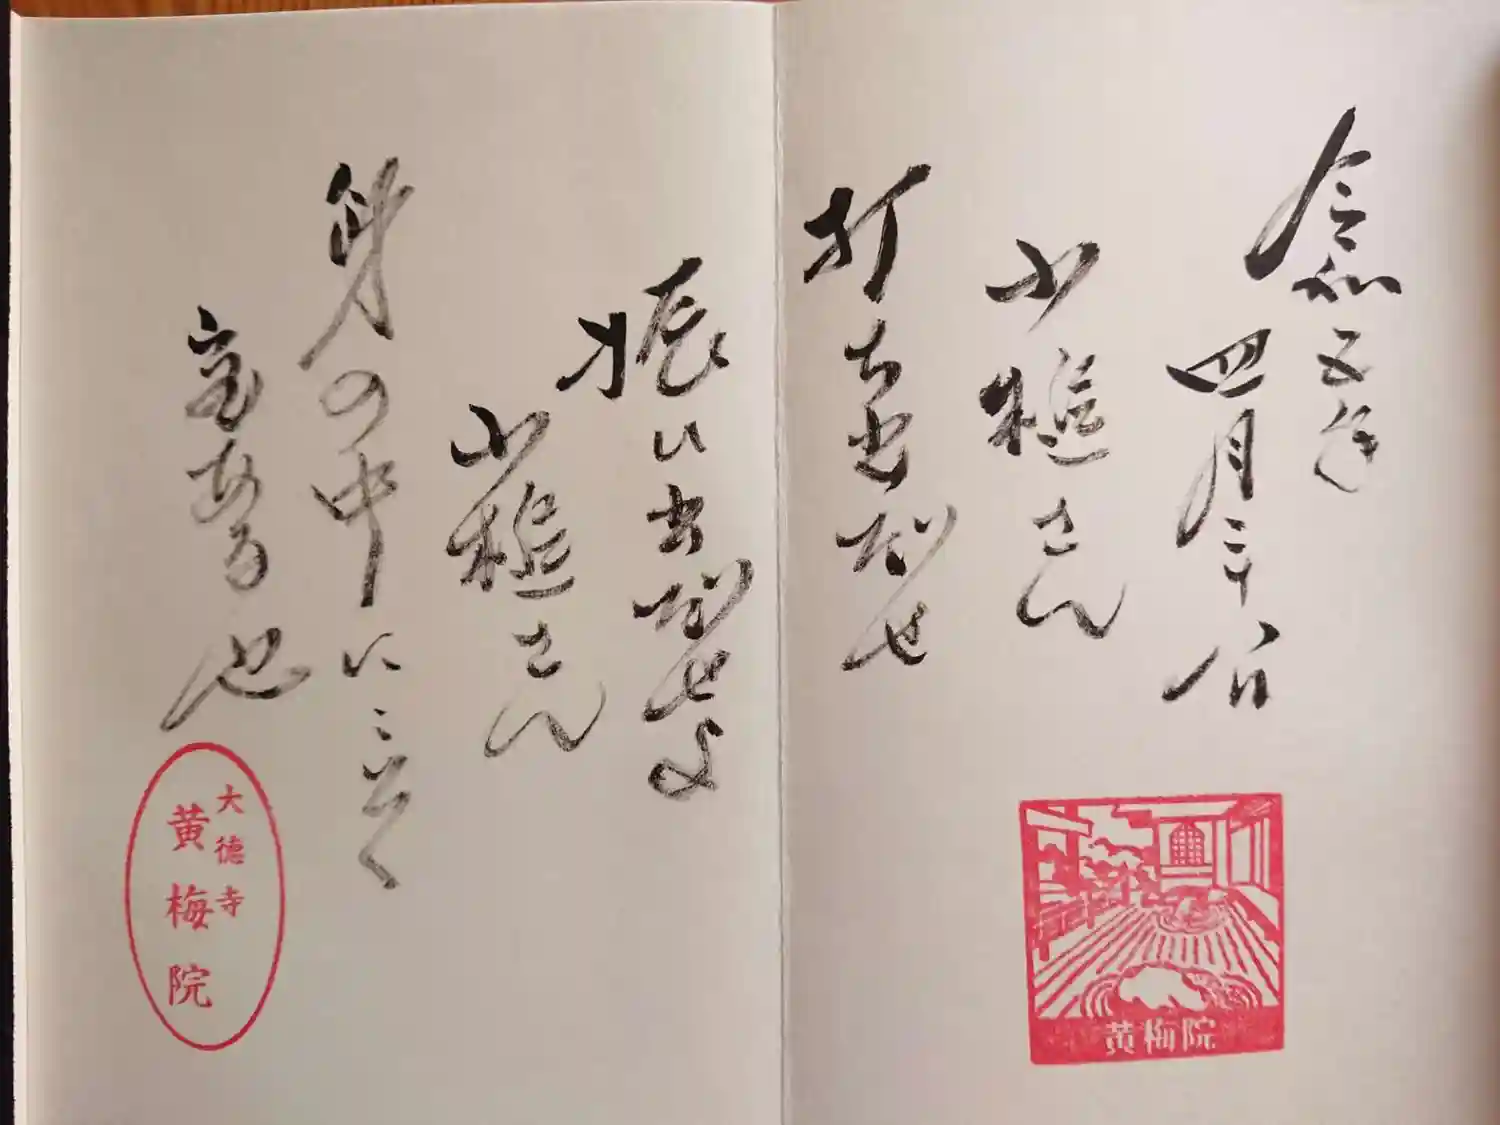 令和五年
四月三十日
小槌さん
打ち出だせ
振い出だせよ
小槌さん
身の中に
宝ある也
大徳寺
黄梅院
黄梅院